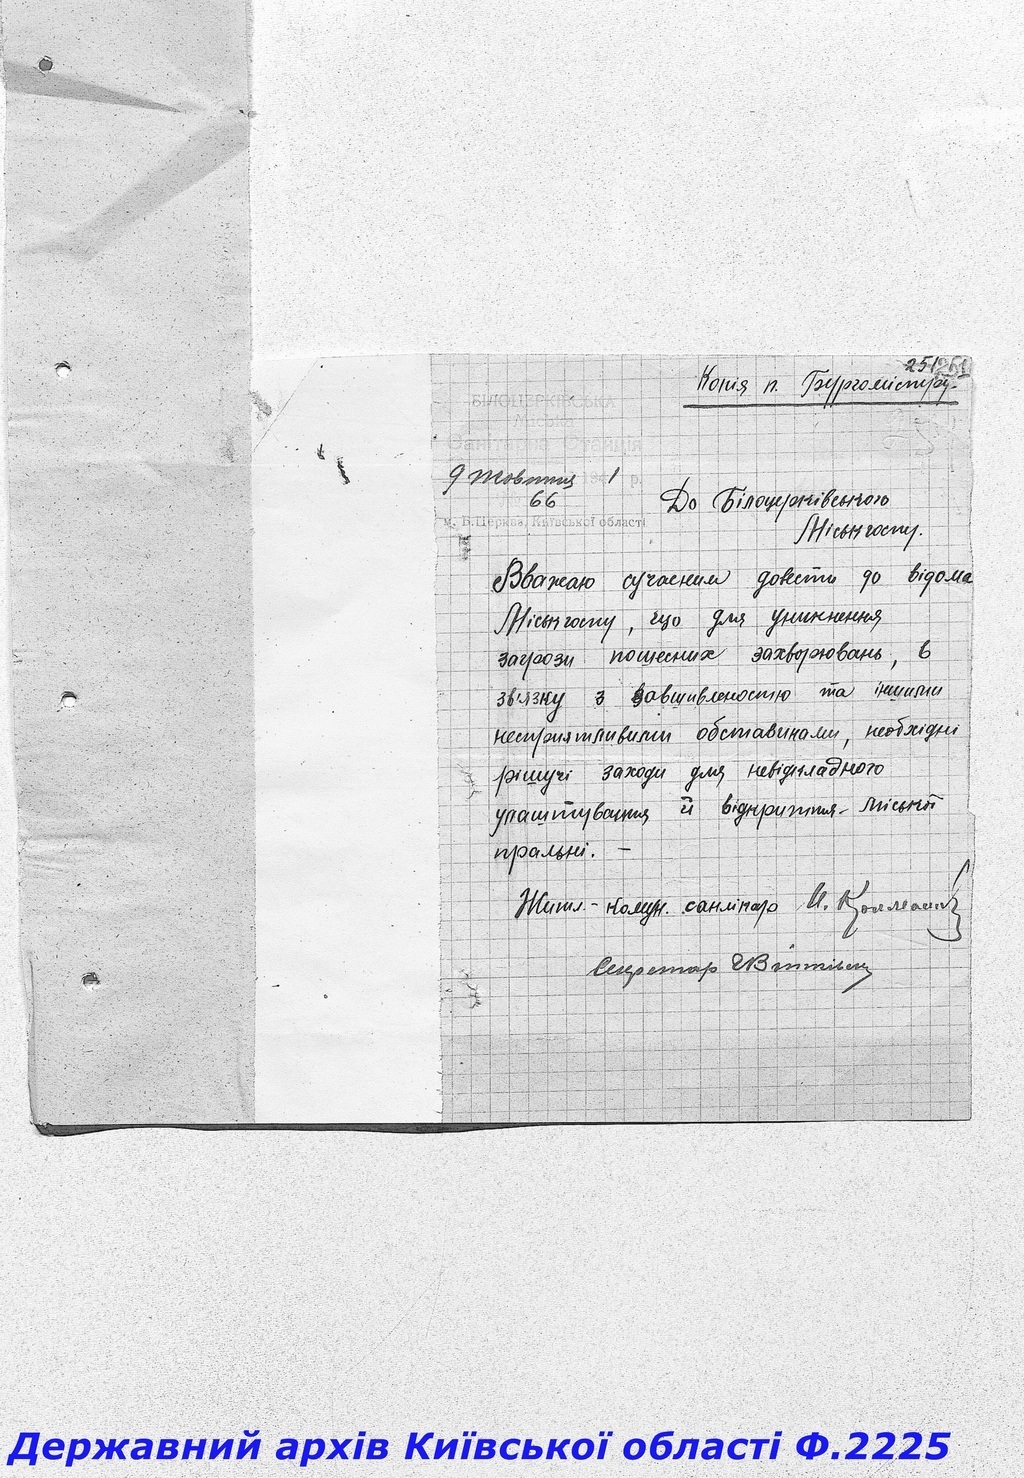 251 261
Копія п. Бургомістру.
БІЛОЦЕРКІВСЬКА
Міська
Санітарна Станція
9 жовтня 1941 р.
66
м. Б.Церква, Київської області
До Білоцерківського
Міськгоспу.
Вважаю сучасним довести до відома
Міськгоспу, що для уникнення
загрози пошесних захворювань, в
зв'язку з завшивленостю та іншими
несприятливими обставинами, необхідні
рішучі заходи для невідкладного
улаштування й відкриття міської
пральні. —
Житл-комун. санлікар
Секретар
Державний архів Київської області Ф.2225